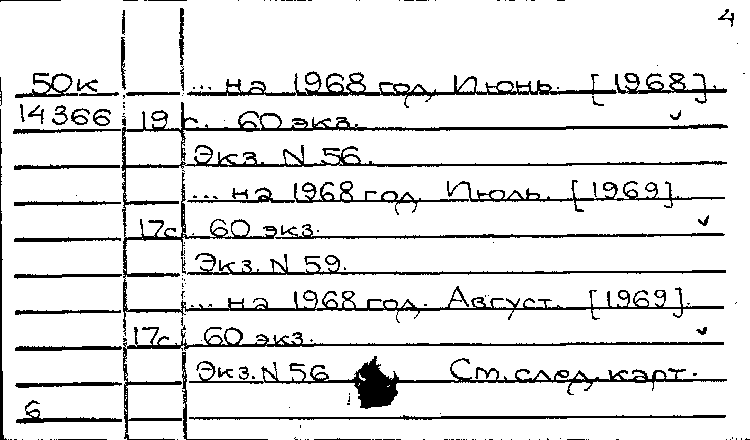 4
50к ... на 1968 год. Июнь. [1968].
14366 19 с. 60 экз. ✓
Экз. N 56.
... на 1968 год. Июль. [1969]
17с. 60 экз. ✓
Экз. N 59.
... на 1968 год. Август. [1969].
17с. 60 экз. ✓
Экз. N 56 См. след. карт.
6